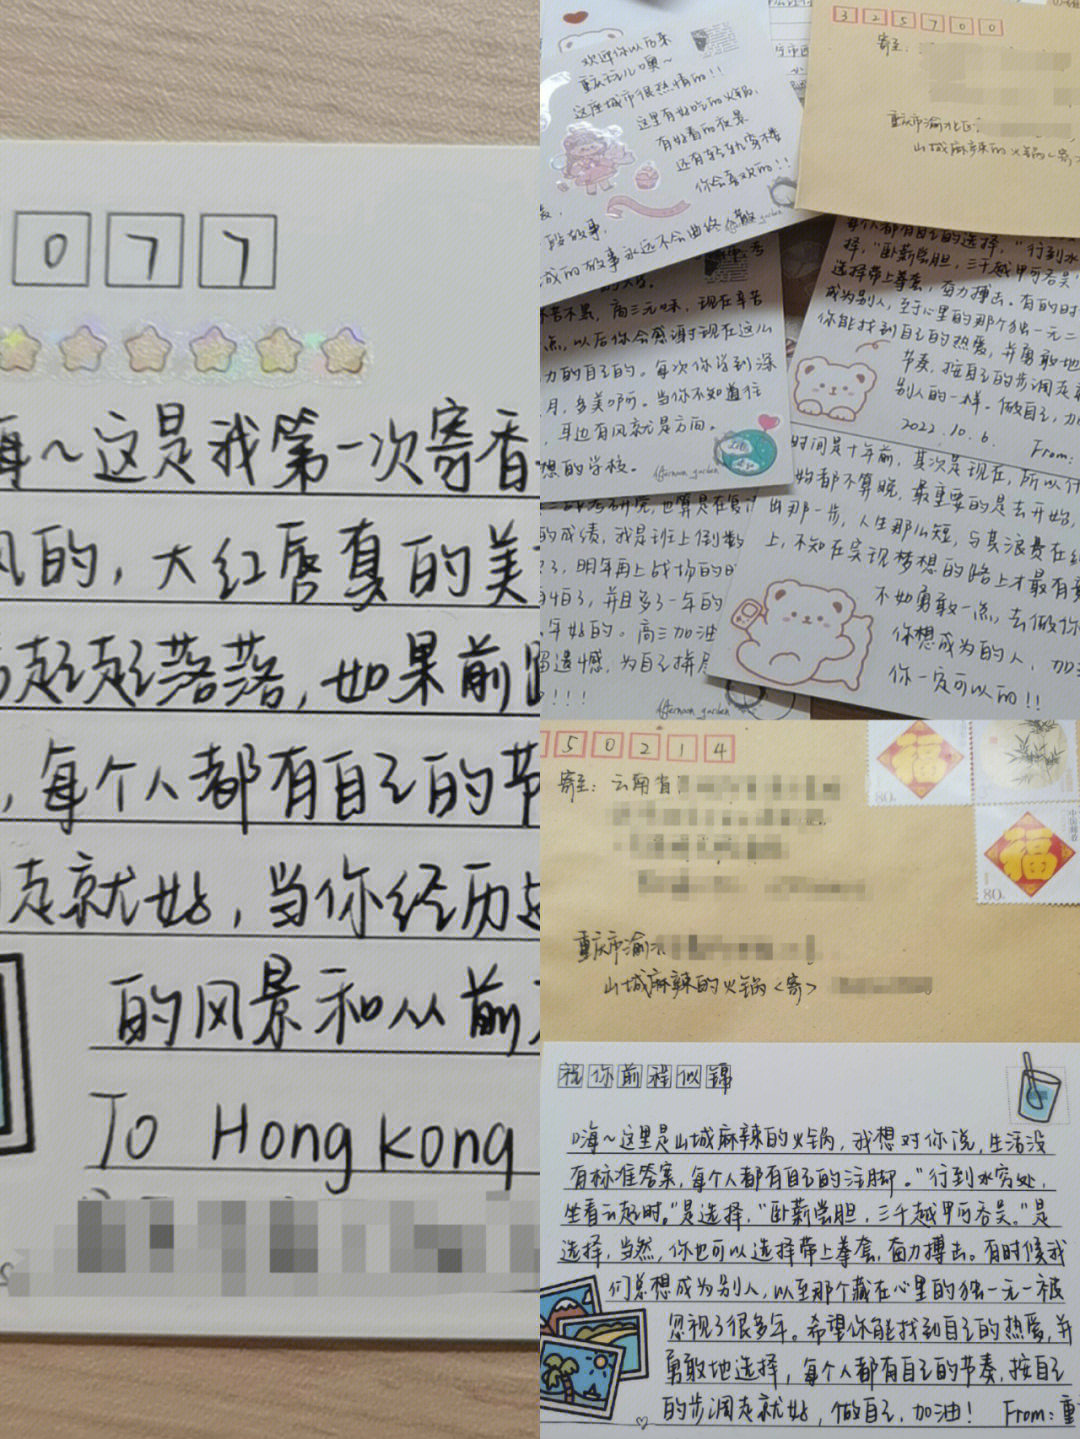 077
嗨~这是我第一次寄香
风的,大红唇真的美
起起落落,如果前
,每个人都有自己的节
走就好,当你经历
的风景和从前
To Hong Kong
欢迎你以后来
重庆玩儿噢~
这座城市很热情的!!
这里有好吃的火锅,
有好看的夜景
还有轻轨穿楼
你会喜欢的!!
段故事,
成的故事永远不会曲终人散
325700
寄至:
重庆市渝北区
山城麻辣的火锅<寄
苦不累,高三无味,现在辛苦
点,以后你会感谢现在这么
力的自己的。每次你学到深
月,多美啊。当你不知道往
,耳边有风就是方向。
想的学校。
Afternoon garden
每个人都有自己的选择,“行到水
择,“卧薪尝胆,三千越甲可吞吴
选择带上拳套,奋力搏击。有的时
成为别人,至于心里的那个独一无二
你能找到自己的热爱,并勇敢地
节奏,按自己的步调走
别人的一样。做自己,加
2022.10.6.
From:
二战考研党,也算是在复
的成绩,我是班上倒数
了,明年再上战场的时
年好的。高三加油
留遗憾,为自己拼
!!!
Afternoon garden
时间是十年前,其次是现在,所以什
始都不算晚,最重要的是去开始,
出那一步,人生那么短,与其浪费在
上,不知在实现梦想的路上才最有
不如勇敢一点,去做你
你想成为的人,加
你一定可以的!!
50214
寄至:云南省
80
福
福
80
中国邮政
重庆市渝
山城麻辣的火锅<寄>
祝你前程似锦
嗨~这里是山城麻辣的火锅,我想对你说,生活没
有标准答案,每个人都有自己的注脚。“行到水穷处,
坐看云起时。”是选择,“卧薪尝胆,三千越甲可吞吴。”是
选择,当然,你也可以选择带上拳套,奋力搏击。有时候我
们总想成为别人,以至那个藏在心里的独一无一被
忽视了很多年。希望你能找到自己的热爱,并
勇敢地选择,每个人都有自己的节奏,按自己
的步调走就好,做自己,加油! From:重